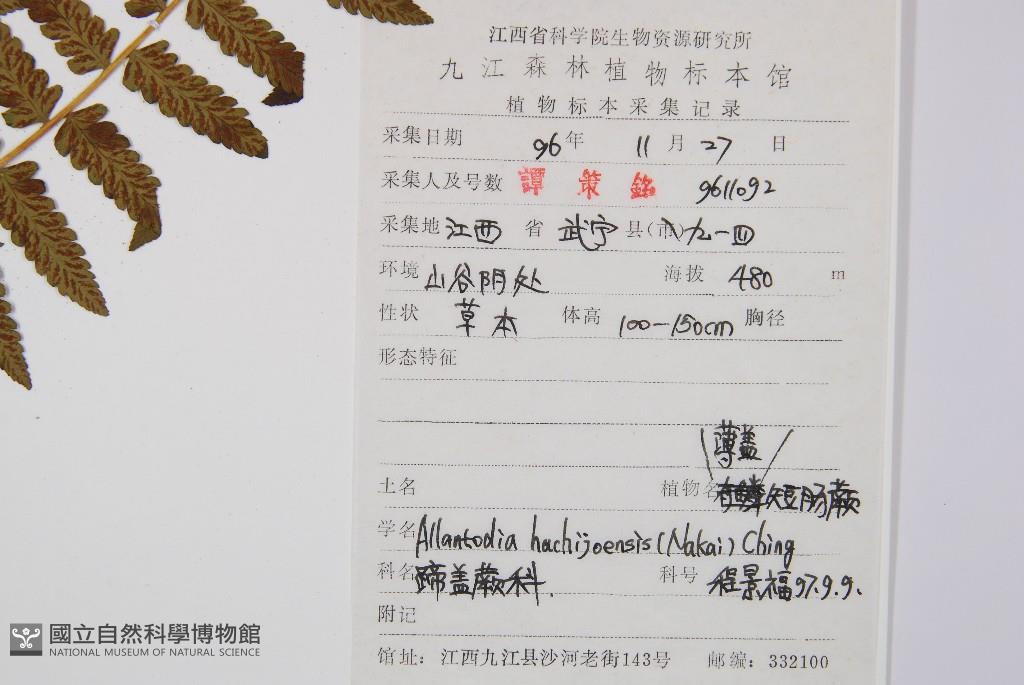 江西省科学院生物资源研究所
九江森林植物标本馆
植物标本采集记录
采集日期 96年 11月 27日
采集人及号数 譚策銘 9611092
采集地 江西 省 武宁 县(市) 九一四
环境 山谷阴处 海拔 480 m
性状 草本 体高 100-150cm 胸径
形态特征
薄盖
土名 植物名 短肠蕨
学名 Allantodia hachijoensis (Nakai) Ching
科名 蹄盖蕨科. 科号 程景福 97.9.9.
附记
馆址：江西九江县沙河老街143号 邮编：332100
國立自然科學博物館
NATIONAL MUSEUM OF NATURAL SCIENCE